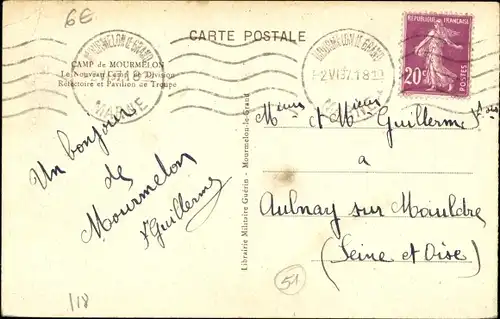 6€
CARTE POSTALE
CAMP de MOURMELON
Le Nouveau Camp de Division
Réfectoire et Pavillon de Troupe
MOURMELON LE GRAND
MARNE
MOURMELON LE GRAND
-2 VI 37 18
RÉPUBLIQUE FRANÇAISE
20c
POSTES
Un bonjour
de
Mourmelon
Guillerme
Librairie Militaire Guérin - Mourmelon-le-Grand
et Guillerme
a
Aulnay sur Mauldre
(Seine et Oise)
51
118